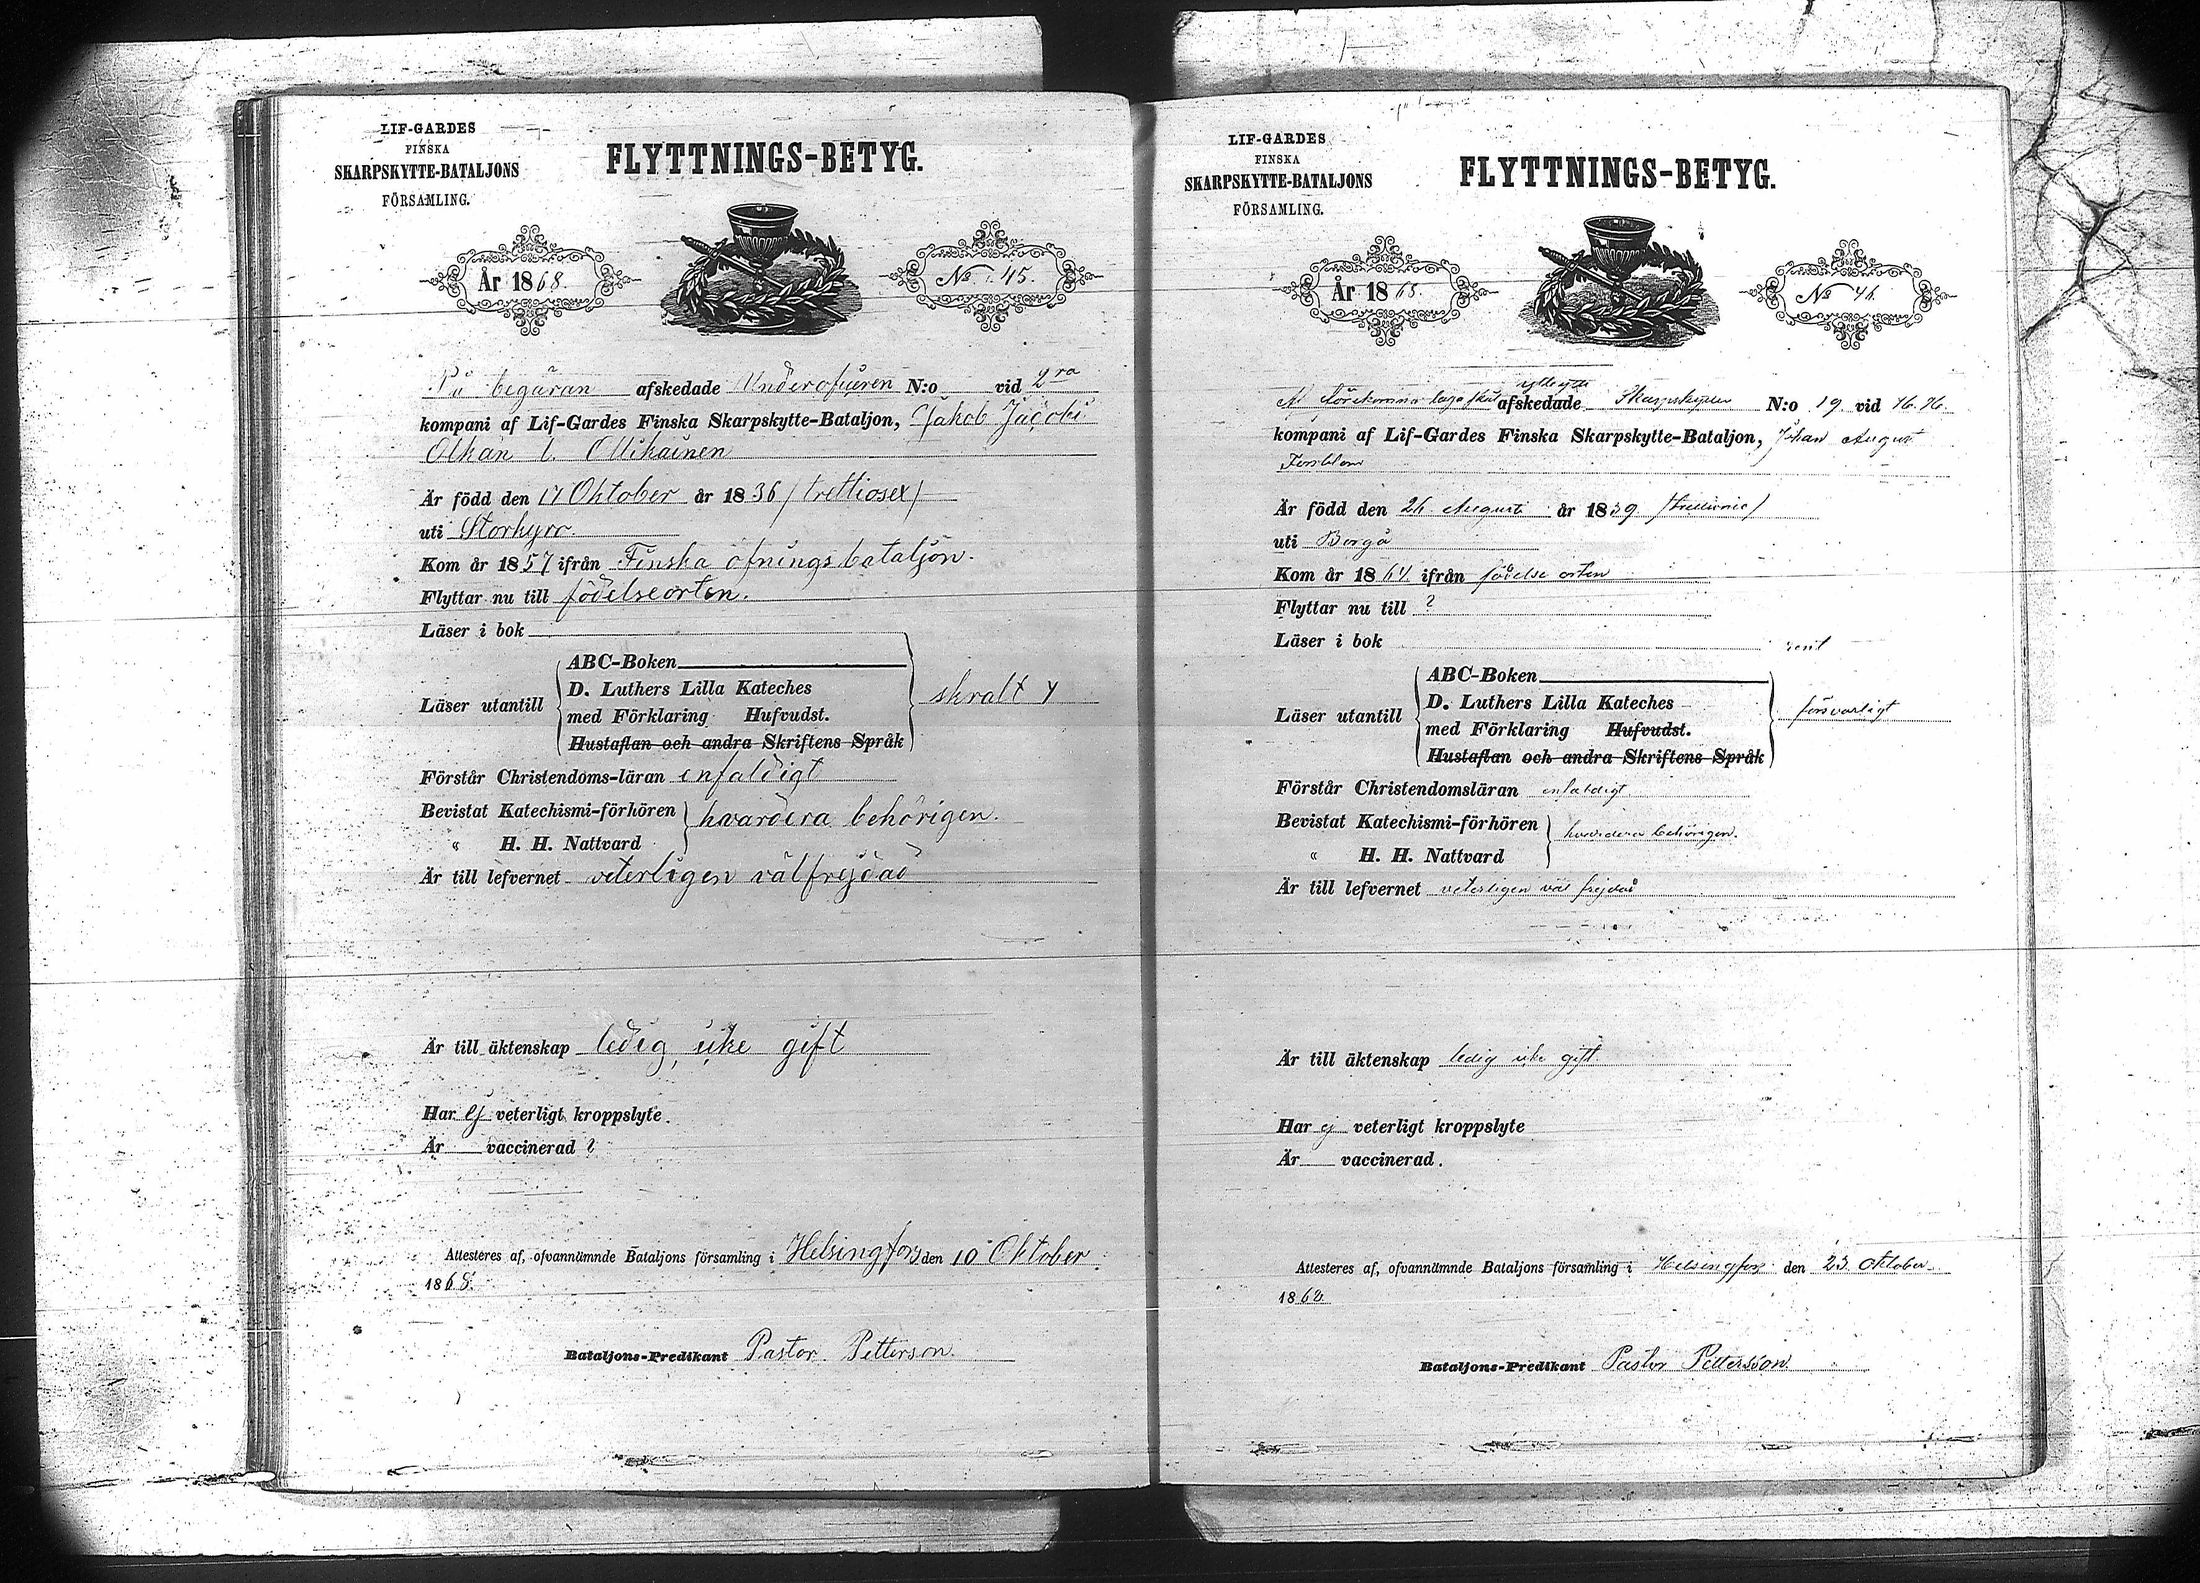 LIF-GARDES
FINSKA
SKARPSKYTTE-BATALJONS
FÖRSAMLING.
FLYTTNINGS-BETYG.
År 1868.
No 45.
På begäran afskedade Underoficeren N:o vid 2ra
kompani af Lif-Gardes Finska Skarpskytte-Bataljon, Jakob Jacobi
Olkan l. Ollikainen
Är född den 17 Oktober år 1836 / trettiosex /
uti Storkyro
Kom år 1857 ifrån Finska öfnings bataljon.
Flyttar nu till födelseorten.
Läser i bok
Läser utantill
ABC-Boken
D. Luthers Lilla Kateches
med Förklaring Hufvudst.
Hustaflan och andra Skriftens Språk
skralt
Förstår Christendoms-läran enfaldigt
Bevistat Katechismi-förhören
" H. H. Nattvard
hvardera behörigen.
Är till lefvernet veterligen välfrejdad
Är till äktenskap ledig, icke gift
Har ej veterligt kroppslyte.
Är vaccinerad ?
Attesteres af, ofvannämnde Bataljons församling i Helsingfors den 10 Oktober.
1868.
Bataljons-Predikant Pastor Petterson.
LIF-GARDES
FINSKA
SKARPSKYTTE-BATALJONS
FÖRSAMLING.
FLYTTNINGS-BETYG.
År 1868.
No 46.
afskedade Skarpskytten N:o 19 vid
kompani af Lif-Gardes Finska Skarpskytte-Bataljon, Johan August
Forsblom
Är född den 26 Augusti år 1839 /trettionie/
uti Borgå
Kom år 1864 ifrån födelse orten
Flyttar nu till ?
Läser i bok rent
Läser utantill
ABC-Boken
D. Luthers Lilla Kateches
med Förklaring Hufvudst.
Hustaflan och andra Skriftens Språk
försvarligt
Förstår Christendomsläran enfaldigt.
Bevistat Katechismi-förhören
" H. H. Nattvard
hvardera behörigen.
Är till lefvernet veterligen väl frejdad
Är till äktenskap ledig icke gift.
Har ej veterligt kroppslyte
Är vaccinerad.
Attesteres af, ofvannämnde Bataljons församling i Helsingfors den 23 Oktober.
1868
Bataljons-Predikant Pastor Pettersson.